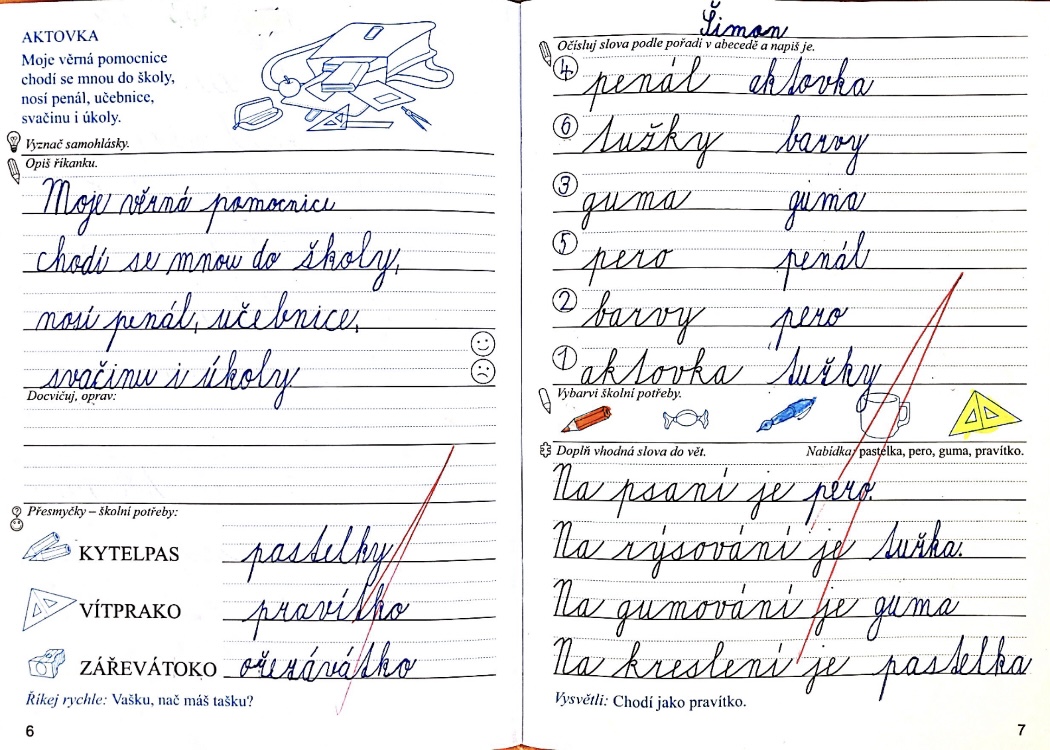 AKTOVKA
Moje věrná pomocnice
chodí se mnou do školy,
nosí penál, učebnice,
svačinu i úkoly.
Vyznač samohlásky.
Opiš říkanku.
Moje věrná pomocnice
chodí se mnou do školy,
nosí penál, učebnice,
svačinu i úkoly
Docvičuj, oprav:
Přesmyčky – školní potřeby:
KYTELPAS pastelky
VÍTPRAKO pravítko
ZÁŘEVÁTOKO ořezávátko
Říkej rychle: Vašku, nač máš tašku?
6
Šimon
Očísluj slova podle pořadí v abecedě a napiš je.
4 penál aktovka
6 tužky barvy
3 guma guma
5 pero penál
2 barvy pero
1 aktovka tužky
Vybarvi školní potřeby.
Doplň vhodná slova do vět. Nabídka: pastelka, pero, guma, pravítko.
Na psaní je pero.
Na rýsování je tužka.
Na gumování je guma
Na kreslení je pastelka
Vysvětli: Chodí jako pravítko.
7